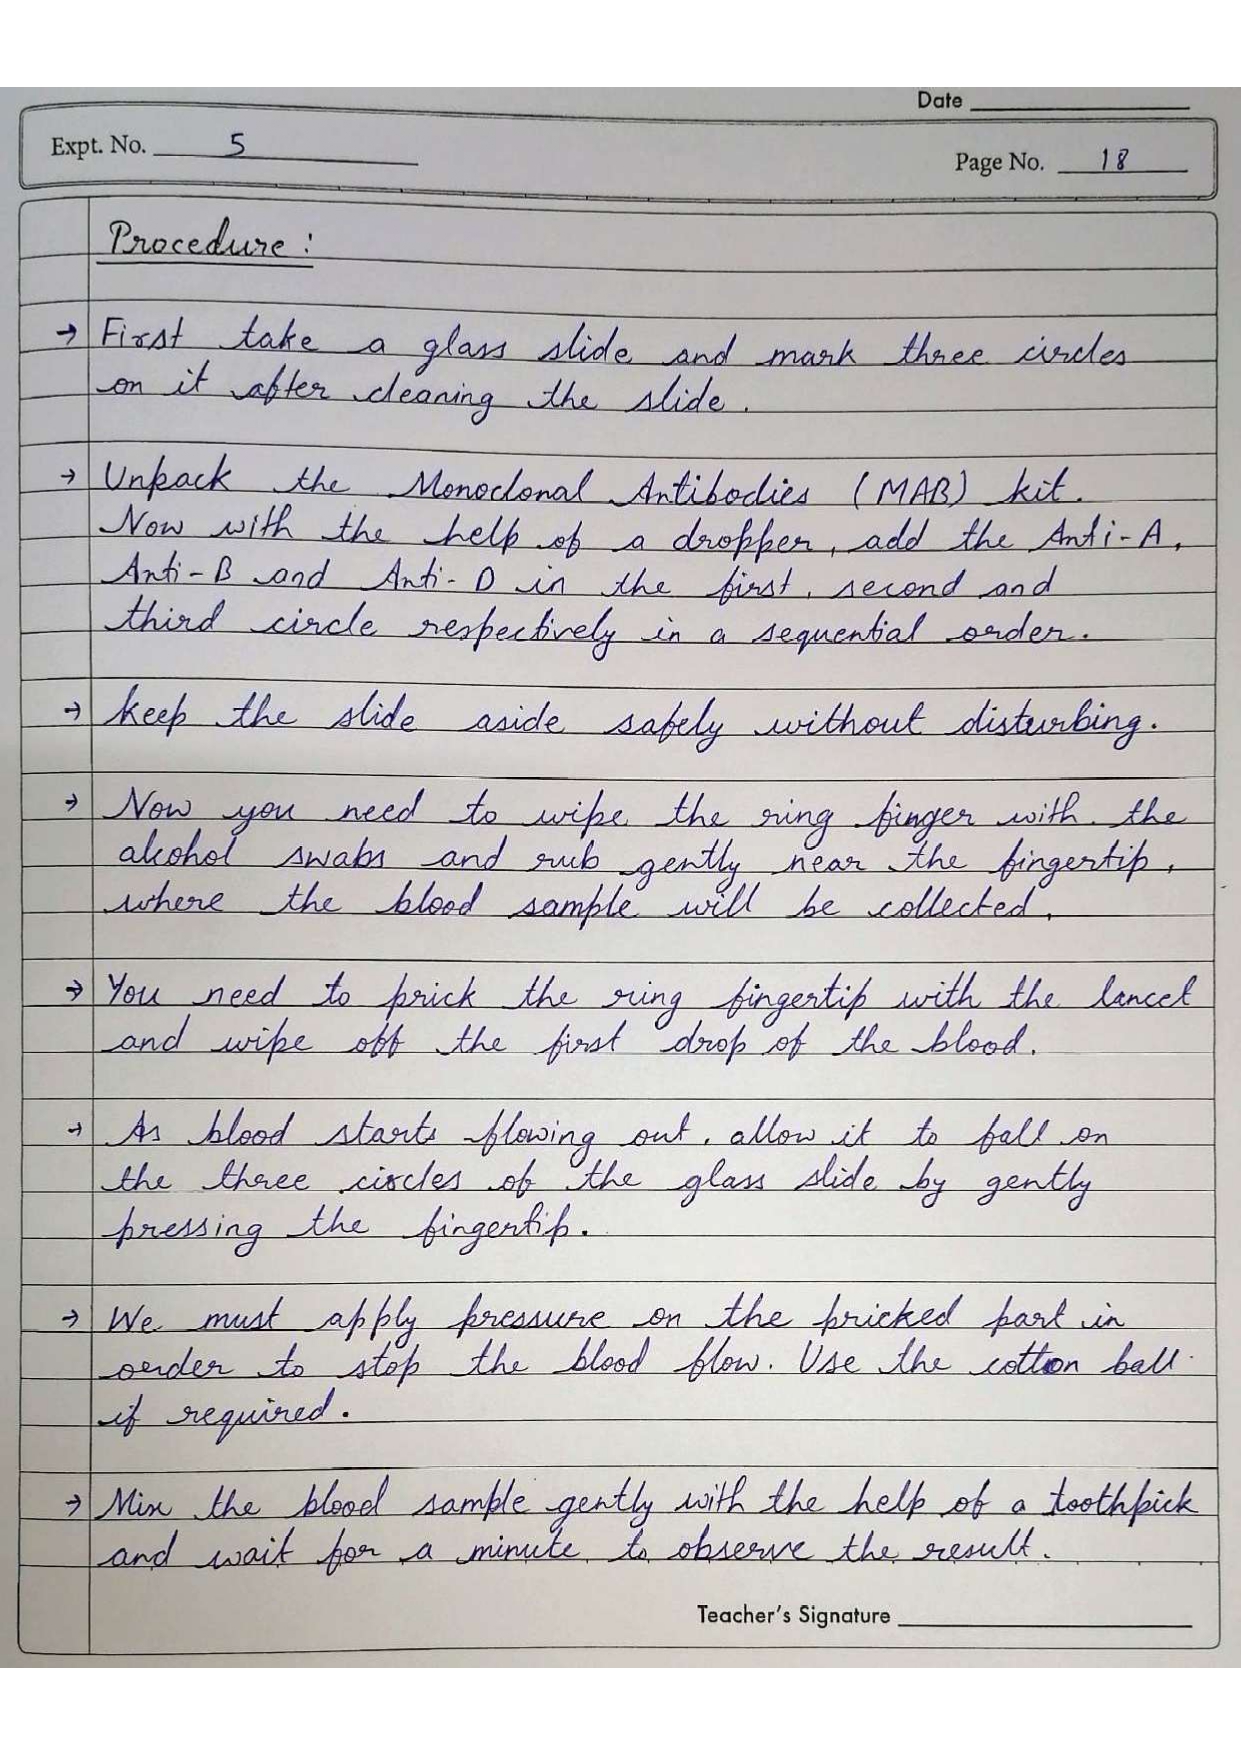 Date
Expt. No. 5
Page No. 18
Procedure :
→ First take a glass slide and mark three circles
on it after cleaning the slide.
→ Unpack the Monoclonal Antibodies (MAB) kit.
Now with the help of a dropper, add the Anti-A,
Anti-B and Anti-D in the first, second and
third circle respectively in a sequential order.
→ keep the slide aside safely without disturbing.
→ Now you need to wipe the ring finger with the
alcohol swabs and rub gently near the fingertip,
where the blood sample will be collected.
→ You need to prick the ring fingertip with the lancet
and wipe off the first drop of the blood.
→ As blood starts flowing out, allow it to fall on
the three circles of the glass slide by gently
pressing the fingertip.
→ We must apply pressure on the pricked part in
order to stop the blood flow. Use the cotton ball
if required.
→ Mix the blood sample gently with the help of a toothpick
and wait for a minute to observe the result.
Teacher's Signature